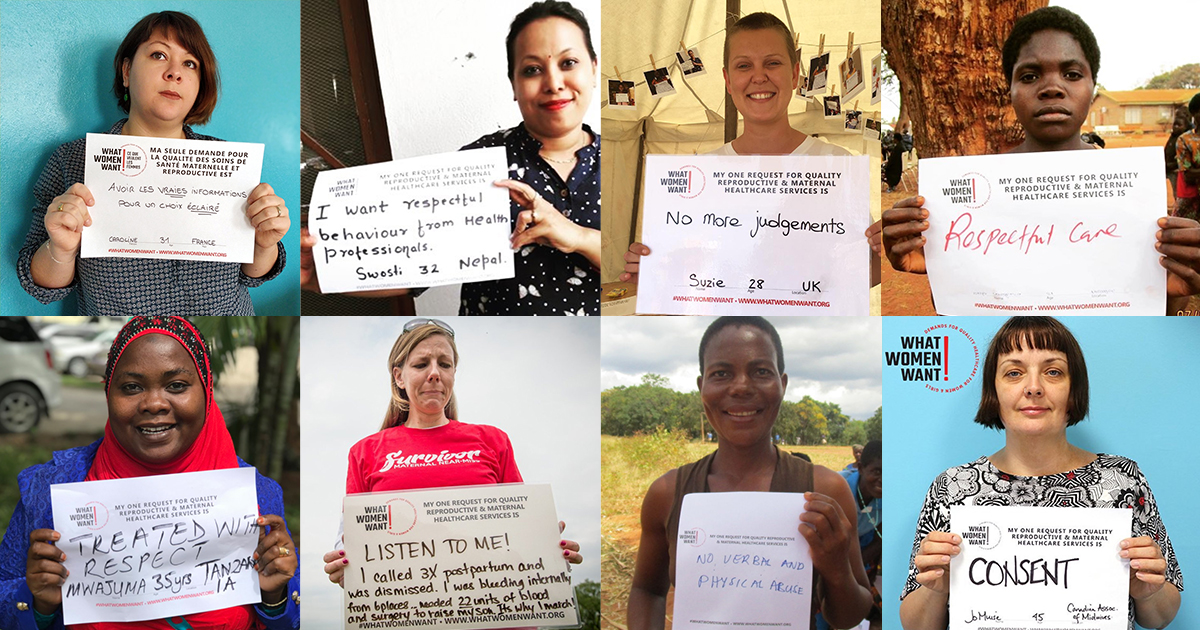 WHAT
WOMEN
WANT!
CE QUE
VEULENT LES
FEMMES
MA SEULE DEMANDE POUR
LA QUALITE DES SOINS DE
SANTÉ MATERNELLE ET
REPRODUCTIVE EST
AVOIR LES VRAIES INFORMATIONS
POUR UN CHOIX ÉCLAIRÉ
CAROLINE 31 FRANCE
#WHATWOMENWANT • WWW.WHATWOMENWANT.ORG
WHAT
WOMEN
WANT!
MY ONE REQUEST FOR QUALITY
REPRODUCTIVE & MATERNAL
HEALTHCARE SERVICES IS
I want respectful
behaviour from Health
professionals.
Swosti 32 Nepal.
WHAT
WOMEN
WANT!
MY ONE REQUEST FOR QUALITY
REPRODUCTIVE & MATERNAL
HEALTHCARE SERVICES IS
No more judgements
Suzie 28 UK
Name Age Location
#WHATWOMENWANT • WWW.WHATWOMENWANT.ORG
WHAT
WOMEN
WANT!
MY ONE REQUEST FOR QUALITY
REPRODUCTIVE & MATERNAL
HEALTHCARE SERVICES IS
Respectful care
#WHATWOMENWANT • WWW.WHATWOMENWANT.ORG
WHAT
WOMEN
WANT!
MY ONE REQUEST FOR QUALITY
REPRODUCTIVE & MATERNAL
HEALTHCARE SERVICES IS
TREATED WITH
RESPECT
MWAJUMA 35yrs TANZAN
IA
#WHATWOMENWANT • WWW.WHATWOMENWANT.ORG
Survivor
MATERNAL NEAR-MISS
WHAT
WOMEN
WANT!
MY ONE REQUEST FOR QUALITY
REPRODUCTIVE & MATERNAL
HEALTHCARE SERVICES IS
LISTEN TO ME!
I called 3X postpartum and
was dismissed. I was bleeding internally
from 6 places... needed 22 units of blood
and surgery to raise my son. Its why I match!
#WHATWOMENWANT • WWW.WHATWOMENWANT.ORG
WHAT
WOMEN
WANT!
MY ONE REQUEST FOR QUALITY
REPRODUCTIVE & MATERNAL
HEALTHCARE SERVICES IS
NO, VERBAL AND
PHYSICAL ABUSE
#WHATWOMENWANT • WWW.WHATWOMENWANT.ORG
WHAT
WOMEN
WANT!
DEMANDS FOR QUALITY HEALTHCARE FOR WOMEN & GIRLS
WHAT
WOMEN
WANT!
MY ONE REQUEST FOR QUALITY
REPRODUCTIVE & MATERNAL
HEALTHCARE SERVICES IS
CONSENT
45 Canadian Assoc.
of Midwives
#WHATWOMENWANT • WWW.WHATWOMENWANT.ORG